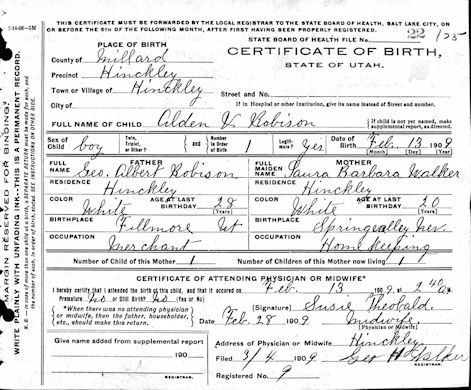 THIS CERTIFICATE MUST BE FORWARDED BY THE LOCAL REGISTRAR TO THE STATE BOARD OF HEALTH, SALT LAKE CITY, ON
OR BEFORE THE 5th OF THE FOLLOWING MONTH, AFTER FIRST HAVING BEEN PROPERLY REGISTERED.
STATE BOARD OF HEALTH FILE No. 22/125
PLACE OF BIRTH
CERTIFICATE OF BIRTH,
STATE OF UTAH.
County of Millard
Precinct Hinckley
Town or Village of Hinckley Street and No.
City of If in Hospital or other Institution, give its name instead of Street and number.
FULL NAME OF CHILD Alden Robison If child is not yet named, make supplemental report, as directed.
Sex of Child boy Twin, Triplet, or Other? and Number 1 Legitimate? Yes Date of Birth Feb. 13 1909
(Month) (Day) (Year)
FATHER
FULL NAME Geo. Albert Robison
RESIDENCE Hinckley
COLOR White AGE AT LAST BIRTHDAY 28 (Years)
BIRTHPLACE Fillmore Ut
OCCUPATION Merchant
MOTHER
FULL MAIDEN NAME Laura Barbara Walker
RESIDENCE Hinckley
COLOR White AGE AT LAST BIRTHDAY 20 (Years)
BIRTHPLACE Springvalley Nev.
OCCUPATION Home keeping
Number of Child of this Mother 1 Number of Children of this Mother now living 1
CERTIFICATE OF ATTENDING PHYSICIAN OR MIDWIFE*
I hereby certify that I attended the birth of this child, and that it occurred on Feb. 13 1909, at 2 40 a M.
Premature No or Still Birth? No (Yes or No)
*When there was no attending physician or midwife, then the father, householder, etc., should make this return.
(Signature) Susie Theobald
Date Feb. 28 1909 Midwife
(Physician or Midwife)
Give name added from supplemental report
190
REGISTRAR.
Address of Physician or Midwife Hinckley
Filed 3/4 1909 Geo H Walker
REGISTRAR.
Registered No. 9
MARGIN RESERVED FOR BINDING.
WRITE PLAINLY WITH UNFADING INK—THIS IS A PERMANENT RECORD.